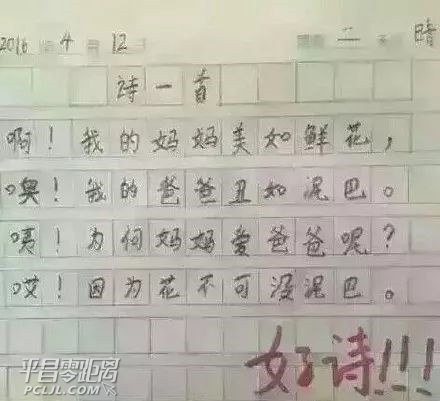 2016 年 4 月 12 日 星期 二 天气 晴
诗一首
啊！我的妈妈美如鲜花，
噢！我的爸爸丑如泥巴。
咦！为何妈妈爱爸爸呢？
哎！因为花不可没泥巴。
好诗!!!
平昌零距离
PCLJL.COM